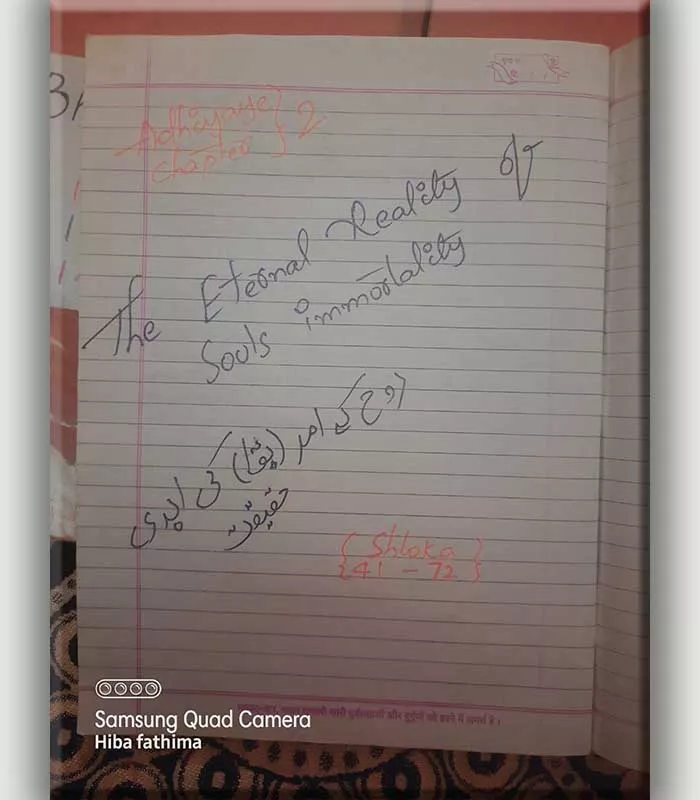 Adhiyaye
chapter } 2
The Eternal Reality of
Souls immortality
روح کے امر (بقا) کی ابدی
حقیقت
{ Shloka }
{ 41 - 72 }
Samsung Quad Camera
Hiba fathima